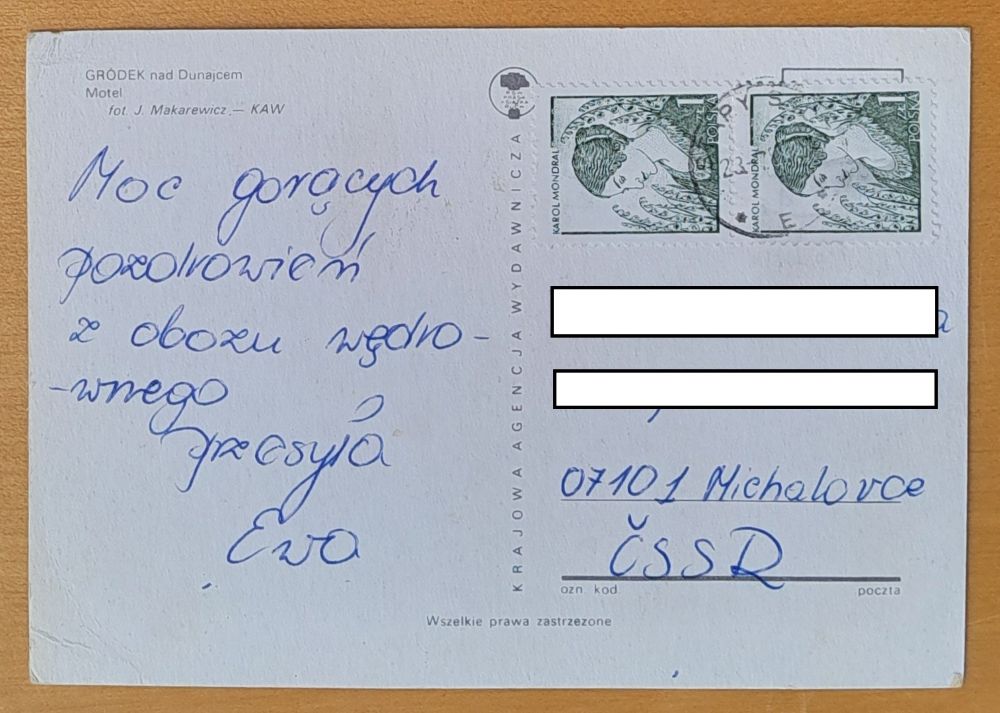 GRÓDEK nad Dunajcem
Motel
fot. J. Makarewicz — KAW
Moc gorących
pozdrowień
z obozu wędro-
-wnego
przesyła
Ewa
KRAJOWA AGENCJA WYDAWNICZA
KAROL MONDRAL
1
POLSKA
KAROL MONDRAL
1
POLSKA
07101 Michalovce
ČSSR
ozn. kod.
poczta
Wszelkie prawa zastrzeżone